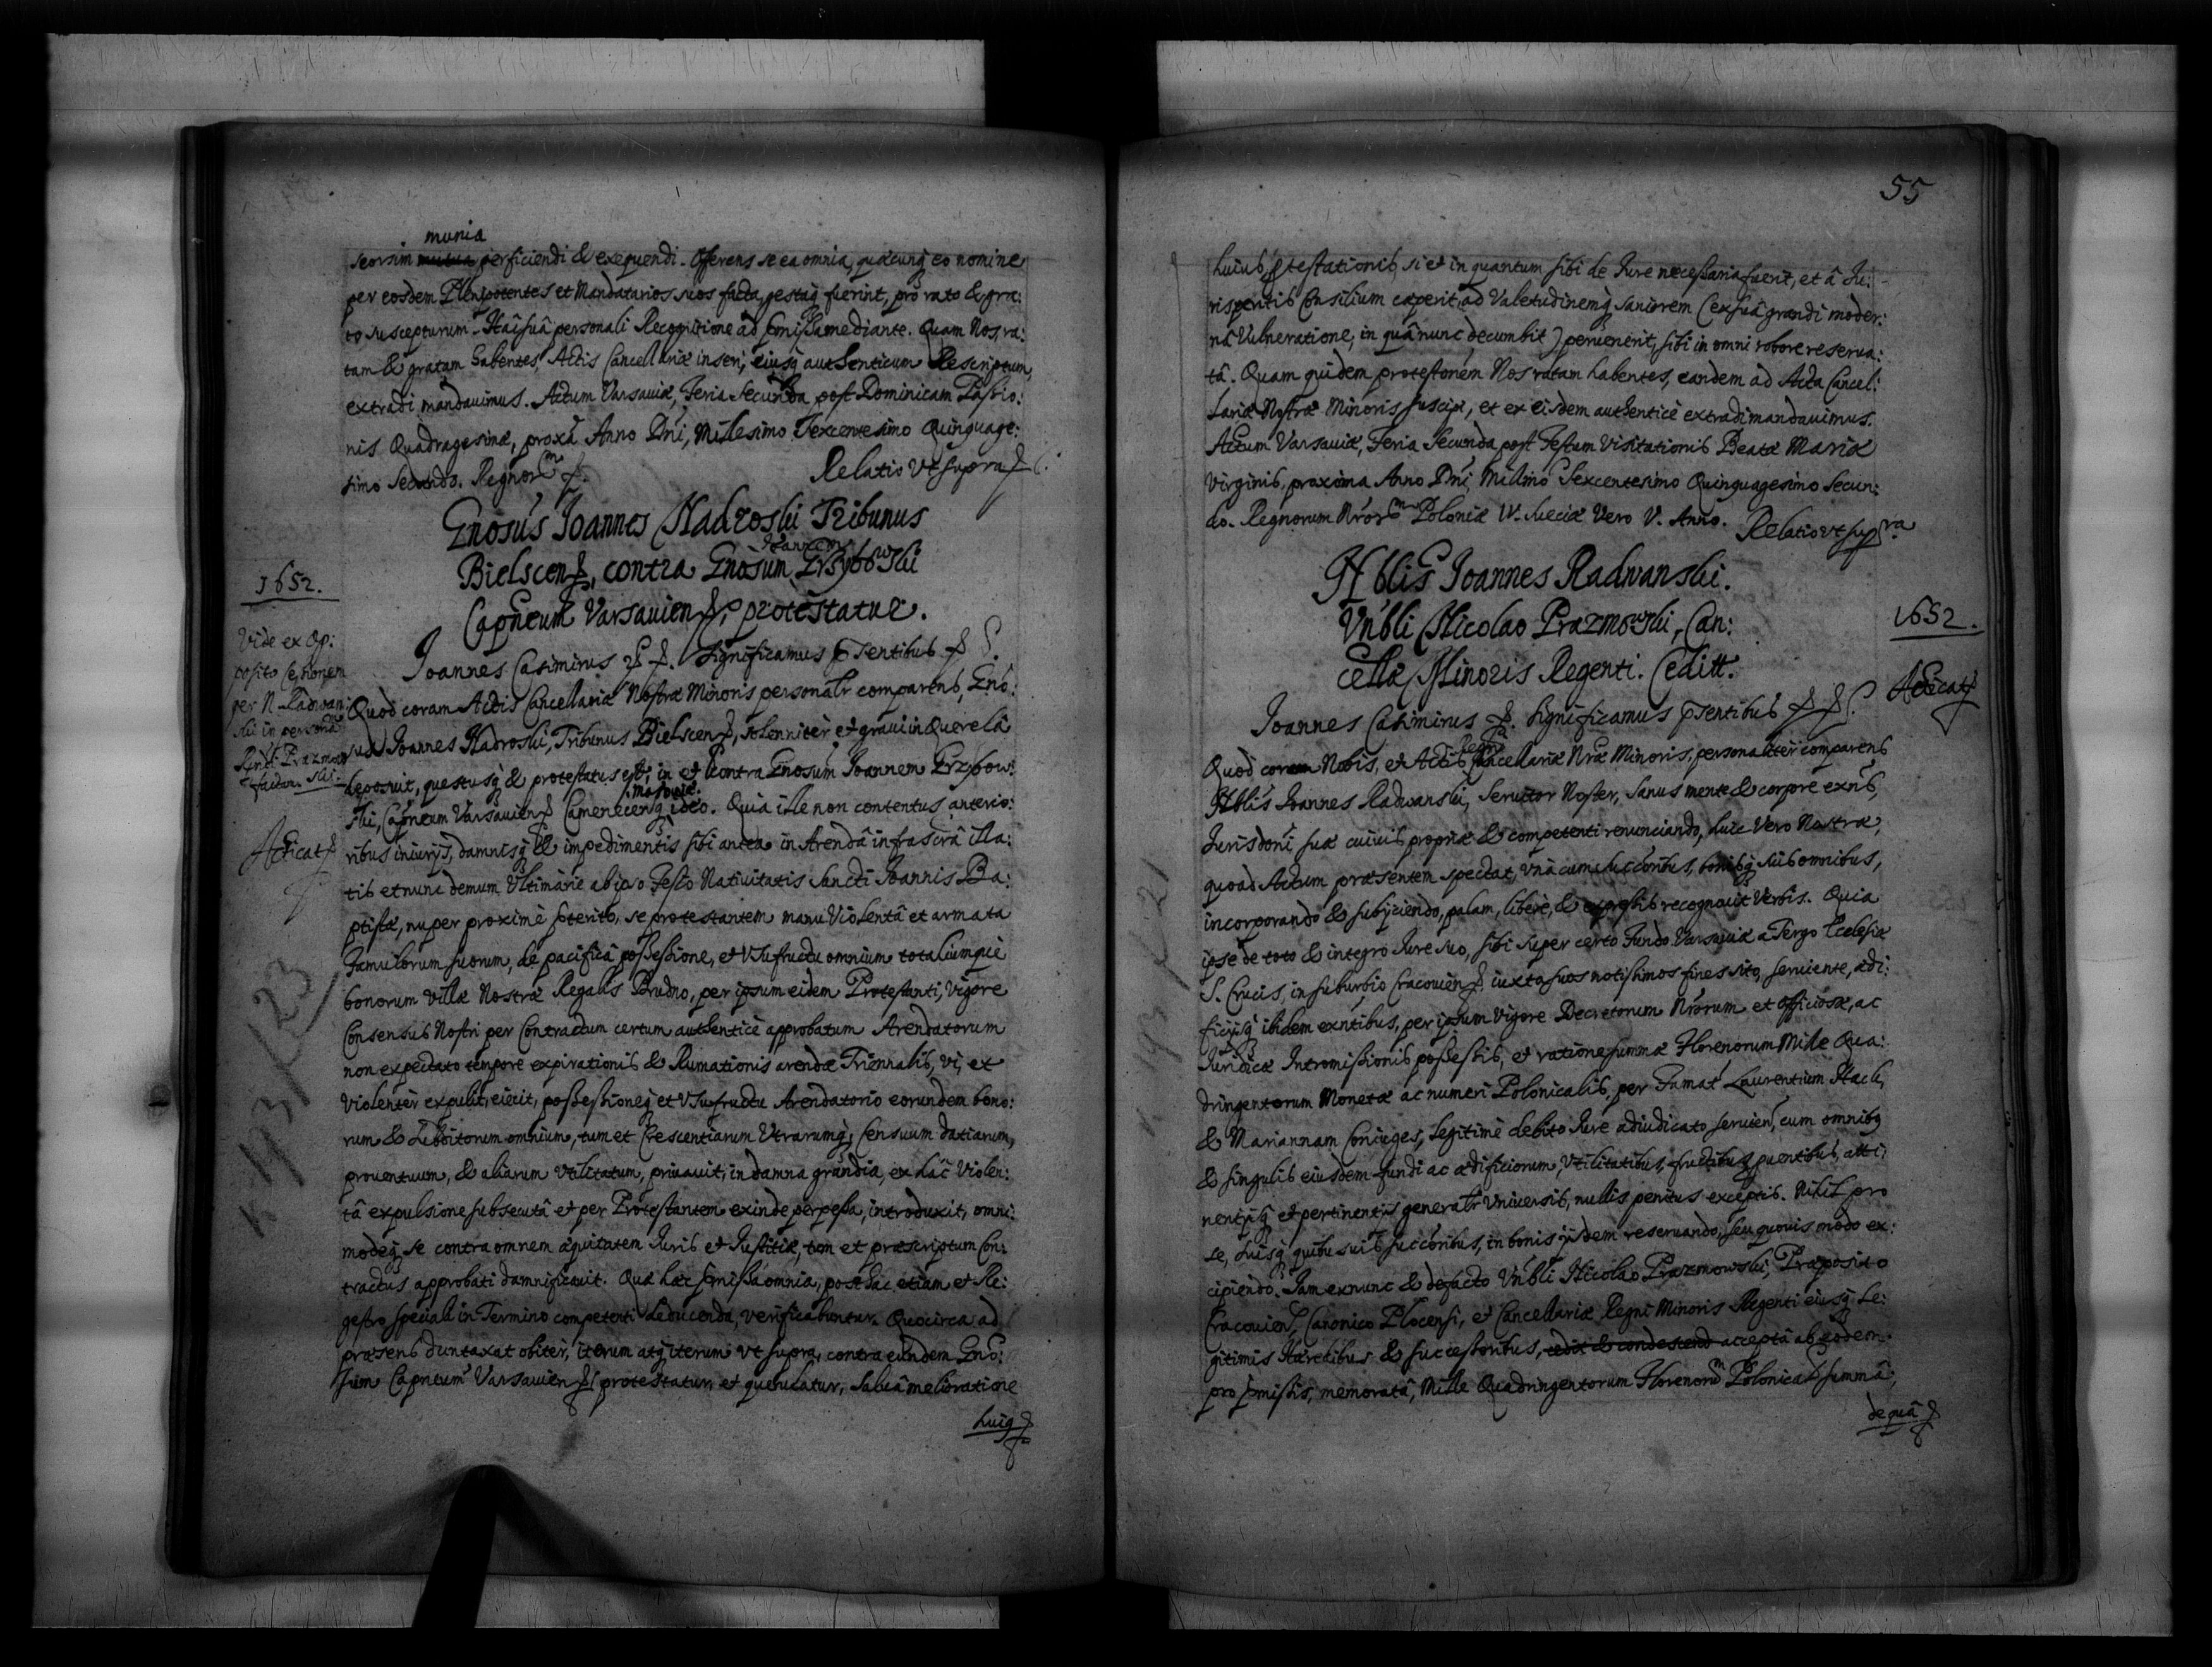 munia
seorsim mutua perficiendi & exequendi. Offerens se ea omnia, quæcunq; eo nomine
per eosdem Plenipotentes et Mandatarios suos facta, gestaq; fuerint, pro rato & gra:
to suscepturum. Hac suâ personali Recognitione ad præmissa mediante. Quam Nos, ra:
tam & gratam habentes, Actis Cancellariæ inseri, eiusq; authenticum Rescriptum,
extradi mandavimus. Actum Varsaviæ, Feria Secunda post Dominicam Passio:
nis Quadragesimæ, proxâ Anno Dñi, Millesimo Sexcentesimo Quinquage:
simo Secundo. Regnorm
Relatio Vt supra
Gnosus Joannes Nadroski Tribunus
Joannem
Bielscen, contra Gnosum Grzybowski
Capneum Varsavien, protestatur.
1652.
Vide ex Op:
posito Ceßionem
per N. Radwan:
ski in personâ
Rndi Prazmow
ski
factam
Joannes Casimirus Significamus pñsentibus
Quod coram Actis Cancellariæ Nostræ Minoris personalr comparens, Gno:
sus Joannes Nadroski, Tribunus Bielscen, solenniter et gravi in Querelâ
deposuit, questusq; & protestatus est, in et contra Gnosum Joannem Grzybow:
Masoviæ
ski, Capneum Varsavien Camenecenq; ideo. Quia ille non contentus anterio:
ribus iniurijs, damnisq; & impedimentis sibi antea in Arendâ infrascrâ illa:
tis et nunc demum Vltimarie ab ipso Festo Nativitatis Sancti Joannis Ba:
ptistæ, nuper proximè præterito, se protestantem manu Violentâ et armata
Famulorum suorum, de pacificâ poßeßione, et Vsufructu omnium totaliumque
bonorum Villæ Nostræ Regalis Brudno, per ipsum eidem Protestanti, Vigore
Consensus Nostri per Contractum certum authenticè approbatum Arendatorum
non expectato tempore expirationis & Rumationis arendæ Triennalis, vi, et
Violenter expulit, eiecit, poßeßioneq; et Vsufructu Arendatorio eorundem bono:
rum & Subditorum omnium, tum et Crescentiarum Vtrarumq; Censuum datiarum,
proventuum, & aliarum Vtilitatum, privavit, in damna grandia, ex hac Violen:
tâ expulsione subsecutâ et per Protestantem exinde perpeßa, introduxit, omni:
modeq; se contra omnem æquitatem Juris et Justitiæ, tum et præscriptum Con:
tractus approbati damnificavit. Quæ hæc præmißa omnia, post hac etiam et Re:
gestro speciali in Termino competenti deducenda, verificabuntur. Quocirca ad
præsens duntaxat obiter, iterum atq; iterum vt supra, contra eundem Gno:
sum Capneum Varsavien protestatur, et querulatur, Salvâ melioratione
huiq;
55
huius ptestationis, si et in quantum sibi de Jure neceßaria fuerit, et â Ju:
rispertis Consilium cæperit, ad Valetudinemq; saniorem (ex suâ grandi moder:
nâ Vulneratione, in quâ nunc decumbit) pervenerit, sibi in omni robore reserva:
tâ. Quam quidem protestonem Nos ratam habentes, eandem ad Acta Cancel:
lariæ Nostræ Minoris suscipi, et ex eisdem authenticè extradi mandavimus.
Actum Varsaviæ, Feria Secunda post Festum Visitationis Beatæ Mariæ
Virginis, proxima Anno Dñi Millmo Sexcentesimo Quinquagesimo Secun:
do. Regnorum Nrorm Poloniæ IV. Sueciæ Vero V. Anno.
Relatio vt supra
Nblis Joannes Radwanski.
Vnbli Nicolao Prazmowski, Can:
cellæ Minoris Regenti. Ceditt.
1652.
Joannes Casimirus Significamus pñsentibus
Regni
Quod coram Nobis, et Actis Cancellariæ Nræ Minoris, personaliter comparens
Nblis Joannes Radwanski, Servitor Noster, Sanus mente & corpore exñs,
Jurisdoni suæ cuivis propriæ & competenti renunciando, huic Vero Nostræ,
quoad Actum præsentem spectat, Vnà cum succoribus, bonisq; suis omnibus,
incorporando & subijciendo, palam, liberè, & expreßis recognovit Verbis. Quia
ipse de toto & integro Jure suo, sibi super certo Fundo Varsaviæ a Tergo Ecclesiæ
S. Crucis, in suburbio Cracovien iuxta suos notißimos fines sito, serviente, ædi:
ficijsq; ibidem exñtibus, per ipsum Vigore Decretorum Nrorum et officiosæ, ac
Juridicæ Intromißionis poßeßis, et ratione summæ Florenorum Mille Qua:
dringentorum Monetæ ac numeri Polonicalis, per Famat Laurentium
& Mariannam Coniuges, legitimè debito Jure adiudicato servien, cum omnibq
& singulis eiusdem fundi ac ædificiorum, Vtilitatibus, fructibus, pventibus, atti:
nentijsq; et pertinentijs generalr Vniversis, nullis penitus exceptis. Nihil pro
se, suisq; quibusvis succoribus, in bonis ijsdem reservando, seu quovis modo ex:
cipiendo. Jam exnunc & defacto Vnbli Nicolao Prazmowski, Præposito
Cracovien, Canonico Plocensi, et Cancellariæ Regni Minoris Regenti eiusq; Le:
gitimis Hæredibus & succeßoribus, cedit & condescend acceptâ ab eodem
pro præmißis, memoratâ, Mille Quadringentorum Florenorm Polonical summâ,
de quâ